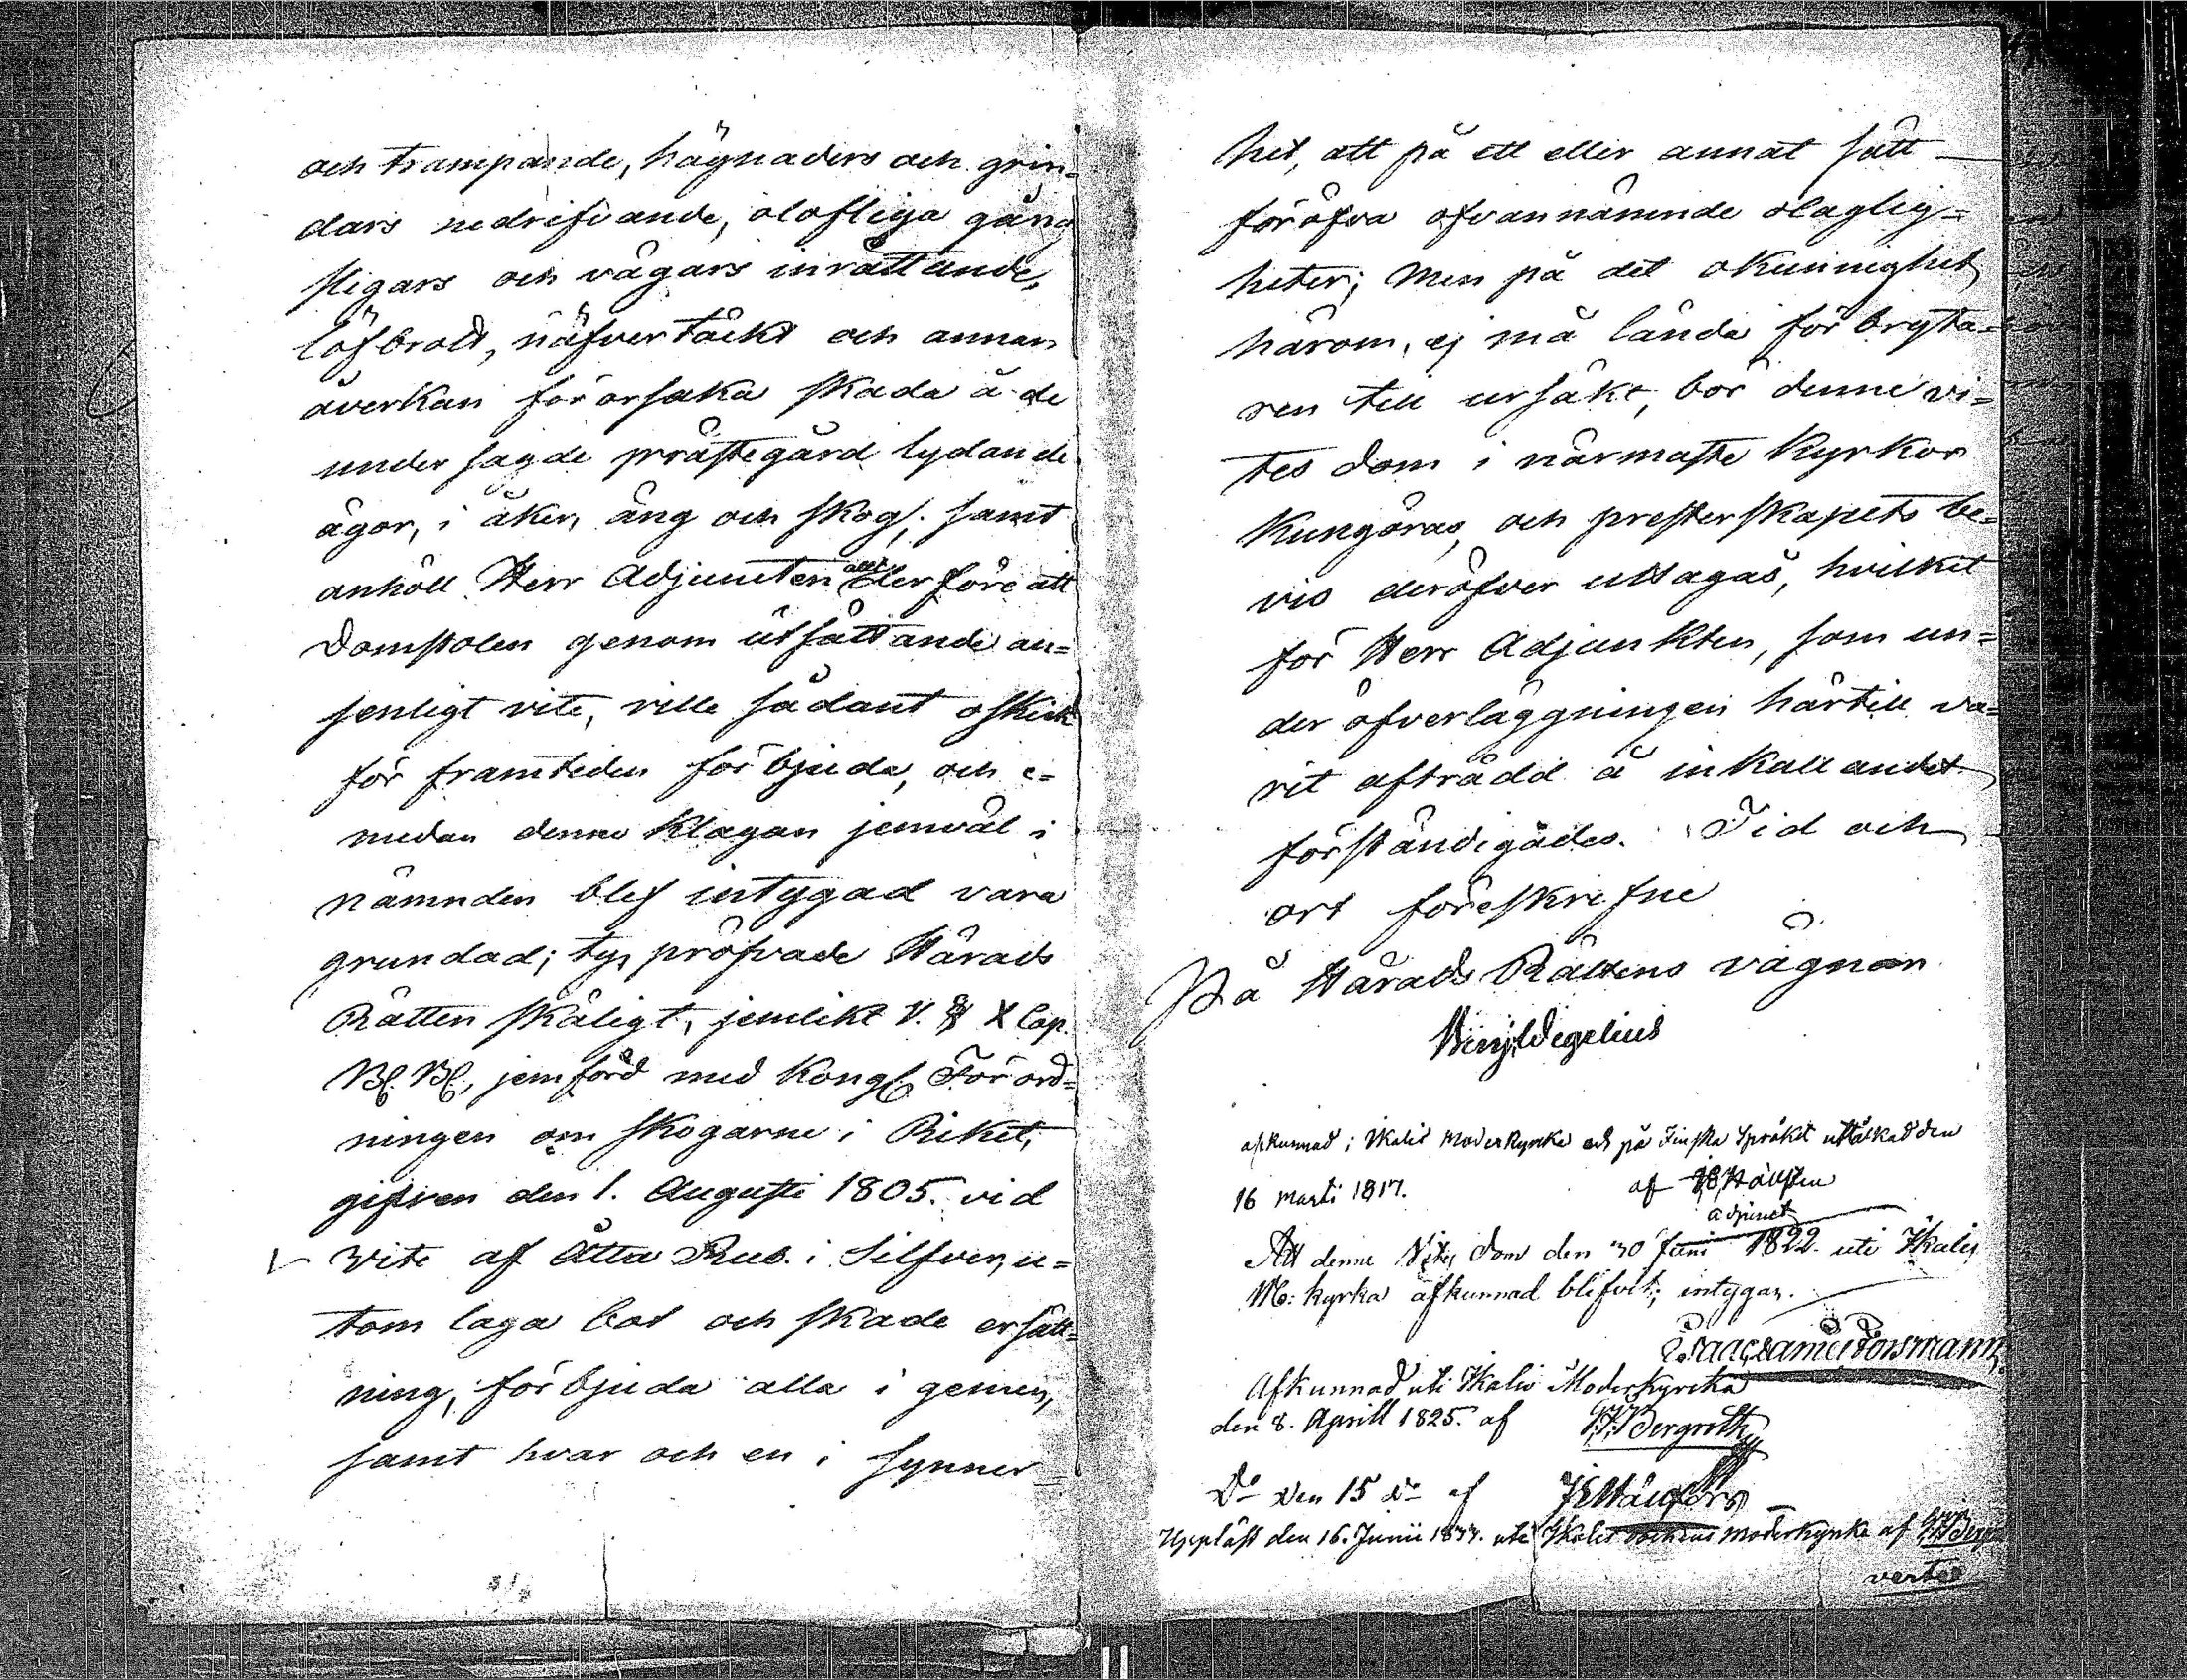 och trampande, hägnaders och grin=
dars nedrifvande, olofliga gång
stigars och vägars inrättande,
löfbrott, näfvertäckt och annan
åverkan förorsaka skada å de
under sagde prästegård lydande
ägor, i åker, äng och skog; samt
anhöll Herr Adjuncten allt derföre att
Domstolen genom utsättande an=
senligt vite, ville sådant oskick
för framtiden förbjuda, och e=
medan denne klagan jemväl i
nämnden blef intygad vara
grundad; ty pröfvade Härads
Rätten skäligt, jemlikt V. § X Cap.
B. B., jemförd med Kongl. Förord=
ningen om skogarne i Riket,
gifven den 1. Augusti 1805. vid
vite af Åtta Rub. i Silfver, u=
tom laga bot och skade ersätt=
ning, förbjuda alla i gemen,
samt hvar och en i synner=
het, att på ett eller annat sätt
föröfva ofvannämnde olaglig=
heter; Men på det okunnighet
härom, ej må lända för bryta=
ren till ursäkt, bör denne vi=
tes dom i närmaste Kyrkor
Kungöras, och presterskapets be=
vis deröfver uttagas, hvilket
för Herr Adjunkten, som un=
der öfverläggningen härtill va=
rit afträdd å inkallandet
förständigades. Tid och
ort föreskrifne
På Härads Rättens vägnar
Afkunnad i Ikalis Moderkyrka och på Finska Språket uttålkad den
16 Marti 1817. af
Adjunct
Att denne Vites Dom den 30 Juni 1822. uti Ikalis
M: kyrka afkunnad blifvit; intygar.
Isaac Samuel Forsmann
Afkunnad uti Ikalis Moderkyrka
den 8. Aprill 1825. af Bergroth
Do den 15 do af
Uppläst den 16. Junii uti Ikalis Sockens Moderkyrka af
vertes